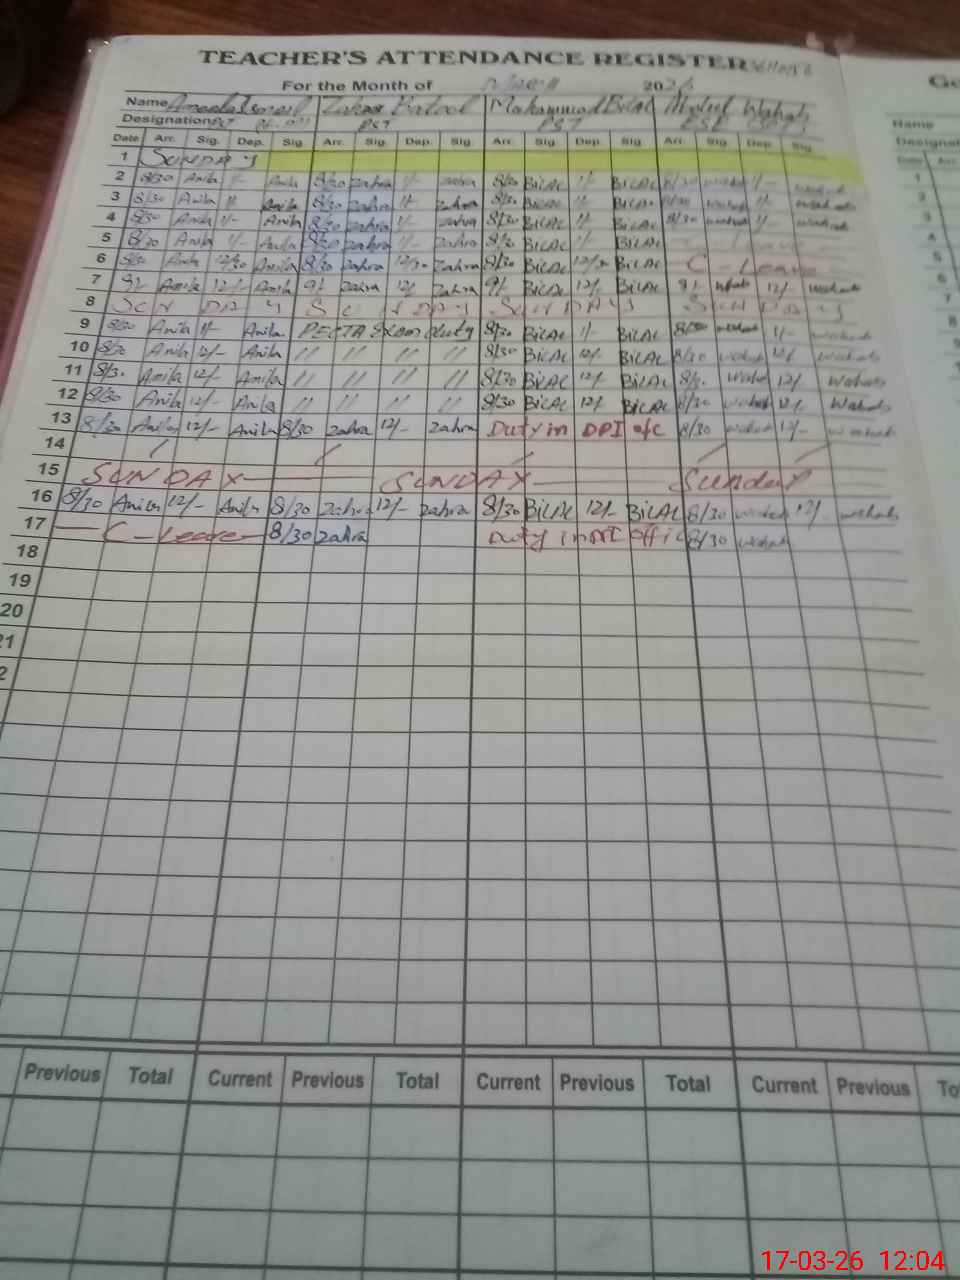 TEACHER'S ATTENDANCE REGISTER
For the Month of March 2026
Name Zahra Batool Muhammad Bilal Wahab
Designation PST PST
Date Arr. Sig. Dep. Sig. Arr. Sig. Dep. Sig. Arr. Sig. Dep. Sig. Arr. Sig. Dep. Sig.
1 SUNDAY
2 8/30 Anila 1/- Anila 8/30 zahra 1/- zahra 8/30 BiLAL 1/- BiLAL 8/30 wahab 1/- wahab
3 8/30 Anila 1/- Anila 8/30 zahra 1/- zahra 8/30 BiLAL 1/- BiLAL 8/30 wahab 1/- wahab
4 8/30 Anila 1/- Anila 8/30 zahra 1/- zahra 8/30 BiLAL 1/- BiLAL 8/30 wahab 1/- wahab
5 8/30 Anila 1/- Anila 8/30 zahra 1/- zahra 8/30 BiLAL 1/- BiLAL
6 8/30 Anila 12/30 Anila 8/30 zahra 12/30 zahra 8/30 BiLAL 12/30 BiLAL C - Leave
7 9/- Anila 12/- Anila 9/- zahra 12/- zahra 9/- BiLAL 12/- BiLAL 9/- wahab 12/- wahab
8 SUNDAY SUNDAY SUNDAY SUNDAY
9 8/30 Anila 1/- Anila PECTA Exam duty 8/30 BiLAL 1/- BiLAL 8/30 wahab 1/- wahab
10 8/30 Anila 12/- Anila // // // // 8/30 BiLAL 12/- BiLAL 8/30 wahab 12/- wahab
11 8/30 Anila 12/- Anila // // // // 8/30 BiLAL 12/- BiLAL 8/30 wahab 12/- wahab
12 8/30 Anila 12/- Anila // // // // 8/30 BiLAL 12/- BiLAL 8/30 wahab 12/- Wahab
13 8/30 Anila 12/- Anila 8/30 zahra 12/- zahra Duty in DPI ofc 8/30 wahab 12/- wahab
14
15 SUNDAY SUNDAY Sunday
16 8/30 Anila 12/- Anila 8/30 zahra 12/- zahra 8/30 BiLAL 12/- BiLAL 8/30 wahab 12/- wahab
17 C - Leave 8/30 zahra Duty in DPI office 8/30 wahab
18
19
20
21
2
Previous Total Current Previous Total Current Previous Total Current Previous To
Go
Name
Designat
Date Arr.
1
2
3
4
5
6
7
8
17-03-26 12:04